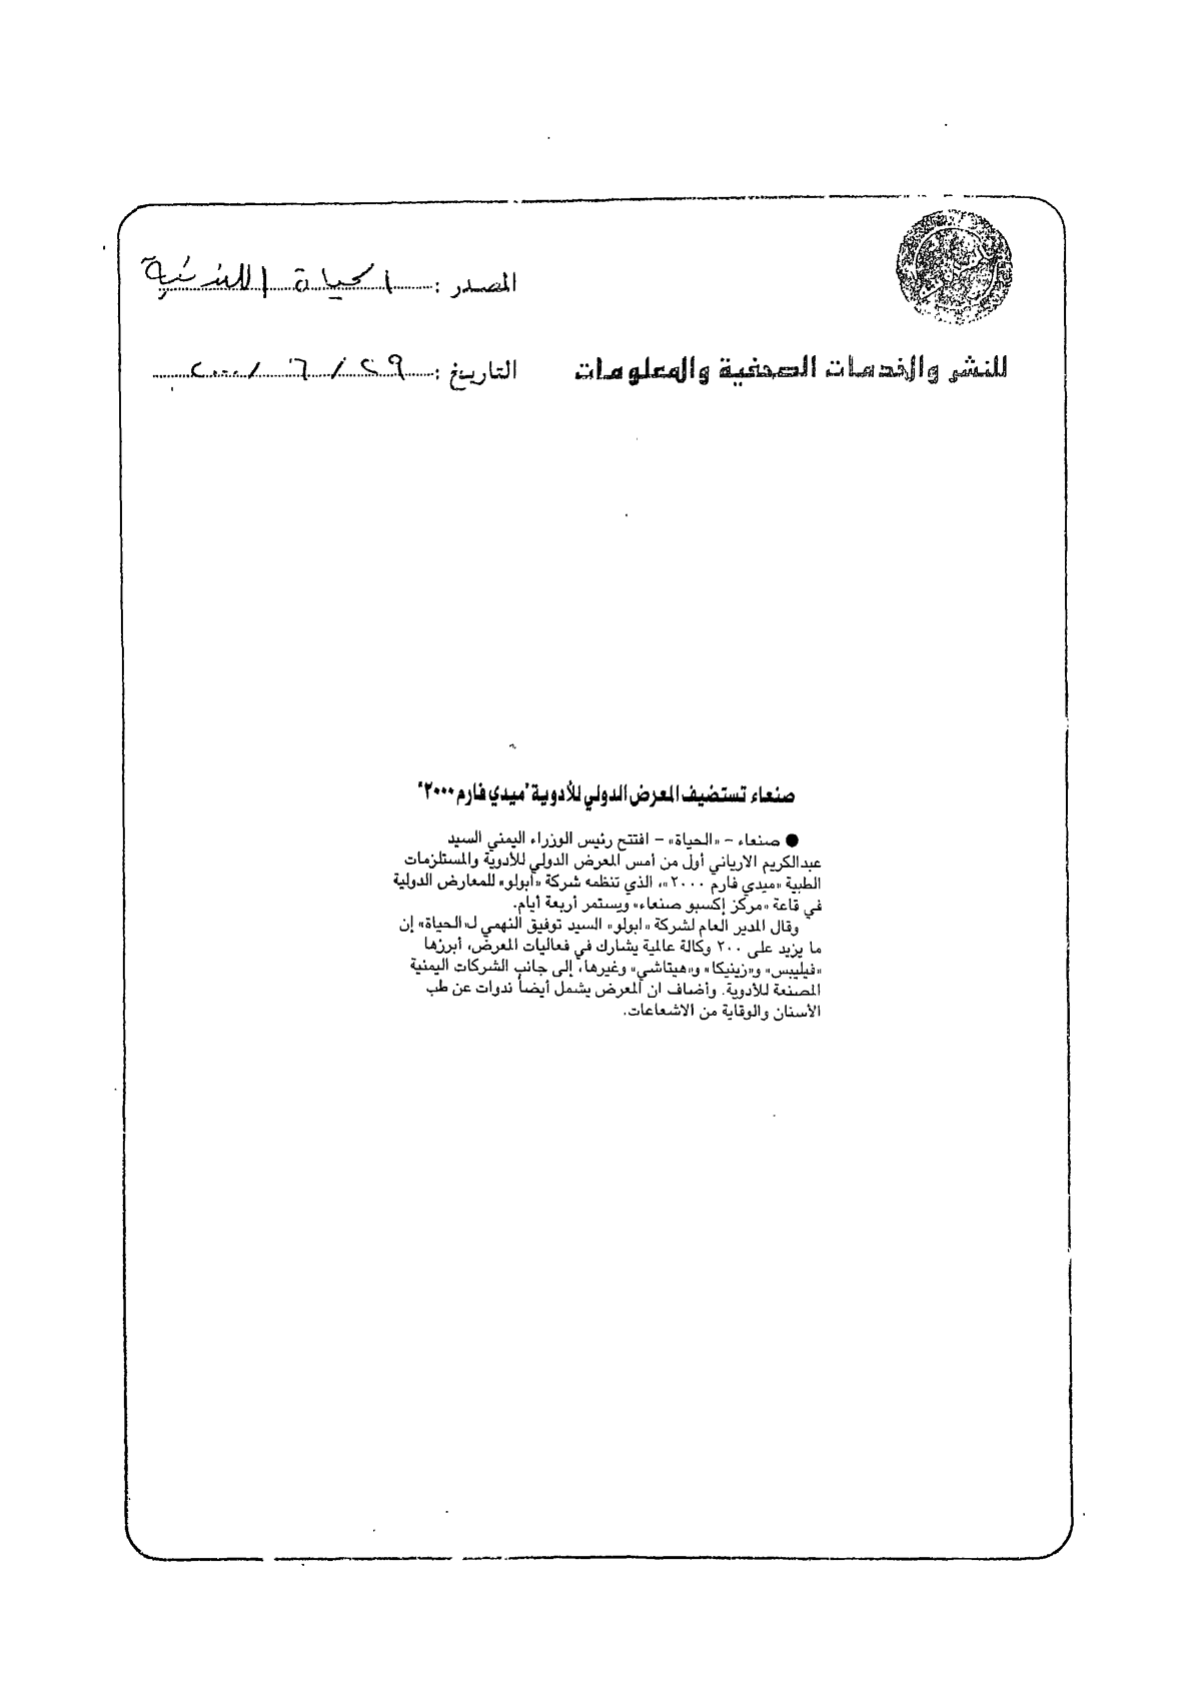 المصدر : الحياة اللندنية
للنشر والخدمات الصحفية والمعلومات
التاريخ : ٢٩ / ٦ / ٢٠٠٠
صنعاء تستضيف المعرض الدولي للأدوية "ميدي فارم ٢٠٠٠"
● صنعاء – «الحياة» – افتتح رئيس الوزراء اليمني السيد
عبدالكريم الارياني أول من أمس المعرض الدولي للأدوية والمستلزمات
الطبية «ميدي فارم ٢٠٠٠»، الذي تنظمه شركة «أبولو» للمعارض الدولية
في قاعة «مركز إكسبو صنعاء» ويستمر أربعة أيام.
وقال المدير العام لشركة «ابولو» السيد توفيق النهمي لـ«الحياة» إن
ما يزيد على ٢٠٠ وكالة عالمية يشارك في فعاليات المعرض، أبرزها
«فيليبس» و«زينيكا» و«هيتاشي» وغيرها، إلى جانب الشركات اليمنية
المصنعة للأدوية. وأضاف ان المعرض يشمل أيضاً ندوات عن طب
الأسنان والوقاية من الاشعاعات.